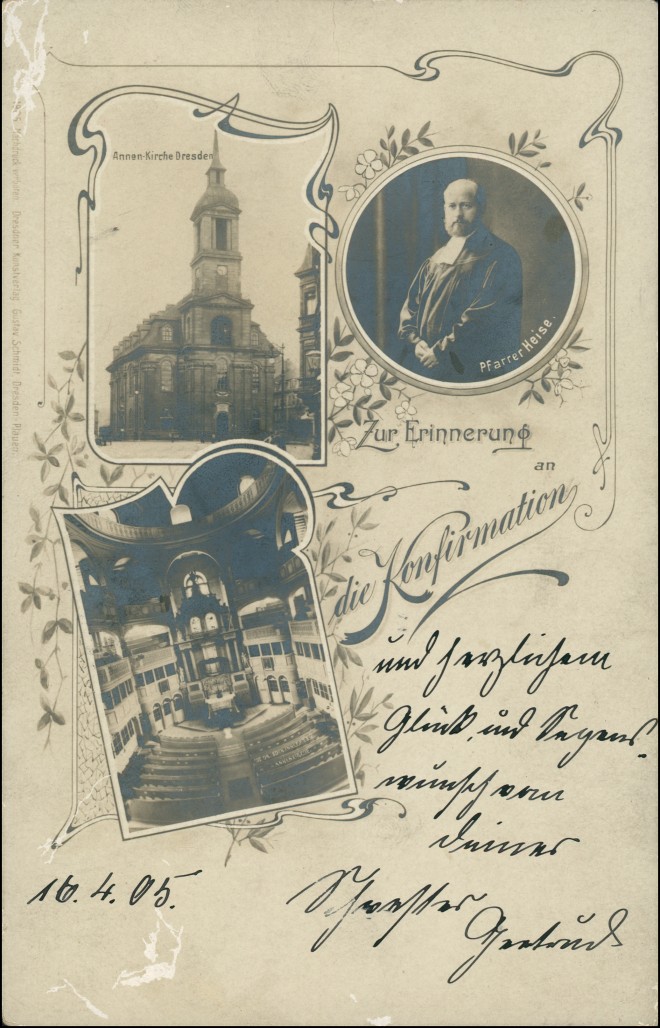 Annen-Kirche Dresden
Pfarrer Heise.
Zur Erinnerung
an
die Konfirmation
und herzlichem
Glück und Segens-
wunsch von
Deiner
Schwester
Gertrud
16.4.05.
Nachdruck verboten. Dresdner Kunstverlag Gustav Schmidt, Dresden-Plauen.